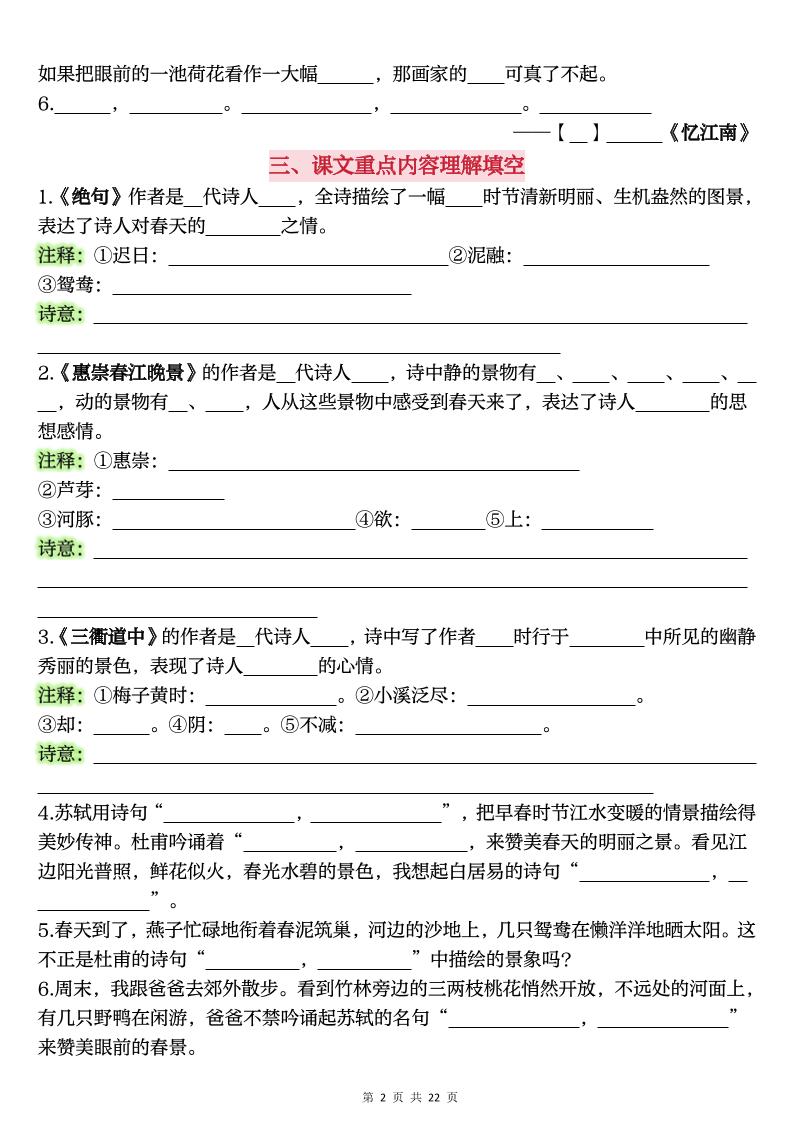 如果把眼前的一池荷花看作一大幅______，那画家的____可真了不起。
6.______，__________。______________，______________。____________
——【__】______《忆江南》
三、课文重点内容理解填空
1.《绝句》作者是__代诗人____，全诗描绘了一幅____时节清新明丽、生机盎然的图景，
表达了诗人对春天的________之情。
注释：①迟日：______________________________②泥融：____________________
③鸳鸯：________________________________
诗意：______________________________________________________________________
________________________________________________________
2.《惠崇春江晚景》的作者是__代诗人____，诗中静的景物有__、____、____、____、__
__，动的景物有__、____，人从这些景物中感受到春天来了，表达了诗人________的思
想感情。
注释：①惠崇：____________________________________________
②芦芽：____________
③河豚：__________________________④欲：________⑤上：____________
诗意：______________________________________________________________________
____________________________________________________________________________
______________________________
3.《三衢道中》的作者是__代诗人____，诗中写了作者____时行于________中所见的幽静
秀丽的景色，表现了诗人________的心情。
注释：①梅子黄时：______________。②小溪泛尽：__________________。
③却：______。④阴：____。⑤不减：____________________。
诗意：_______________________________________________________________________
__________________________________________________________________
4.苏轼用诗句“______________，______________”，把早春时节江水变暖的情景描绘得
美妙传神。杜甫吟诵着“__________，____________，来赞美春天的明丽之景。看见江
边阳光普照，鲜花似火，春光水碧的景色，我想起白居易的诗句“______________，__
____________”。
5.春天到了，燕子忙碌地衔着春泥筑巢，河边的沙地上，几只鸳鸯在懒洋洋地晒太阳。这
不正是杜甫的诗句“__________，__________”中描绘的景象吗?
6.周末，我跟爸爸去郊外散步。看到竹林旁边的三两枝桃花悄然开放，不远处的河面上，
有几只野鸭在闲游，爸爸不禁吟诵起苏轼的名句“______________，______________”
来赞美眼前的春景。
第 2 页 共 22 页